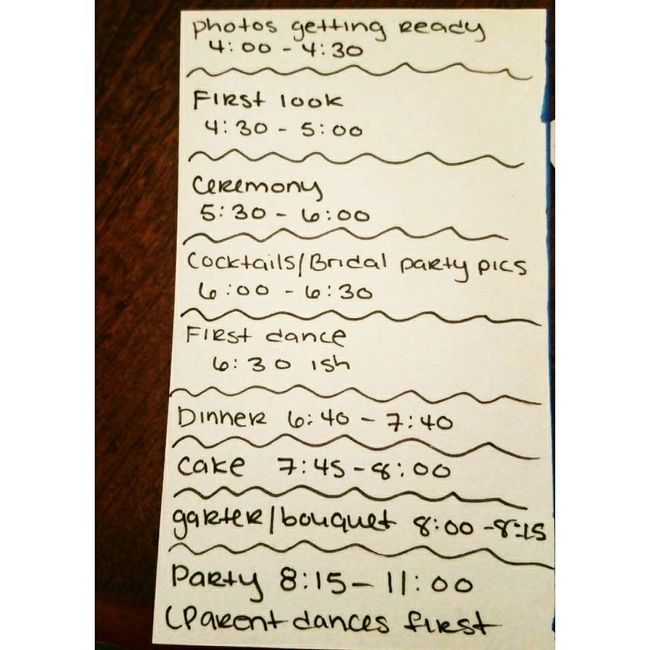 photos getting ready
4:00 - 4:30
First look
4:30 - 5:00
Ceremony
5:30 - 6:00
Cocktails/Bridal party pics
6:00 - 6:30
First dance
6:30 ish
Dinner 6:40 - 7:40
Cake 7:45-8:00
garter/bouquet 8:00-8:15
Party 8:15-11:00
(Parent dances first